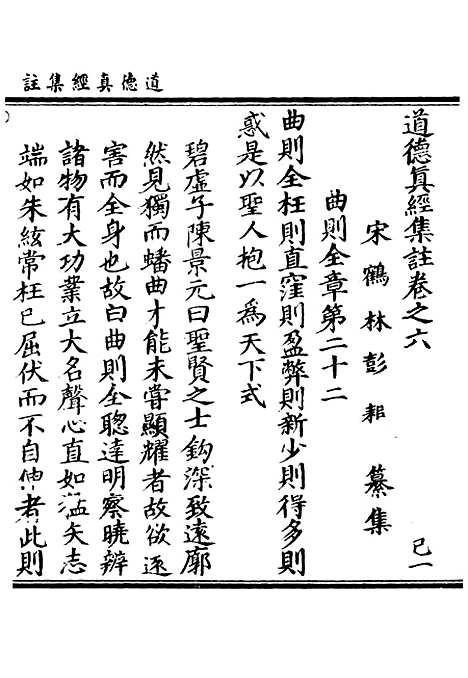 道德真經集註
道德真經集註卷之六
己一
宋鶴林彭耜纂集
曲則全章第二十二
曲則全枉則直窪則盈弊則新少則得多則
惑是以聖人抱一為天下式
碧虛子陳景元曰聖賢之士鈎深致遠廓
然見獨而蟠曲才能未嘗顯耀者故欲逐
害而全身也故曰曲則全聰達明察曉辨
諸物有大功業立大名聲心直如 矢志
端如朱絃常枉己屈伏而不自伸者此則